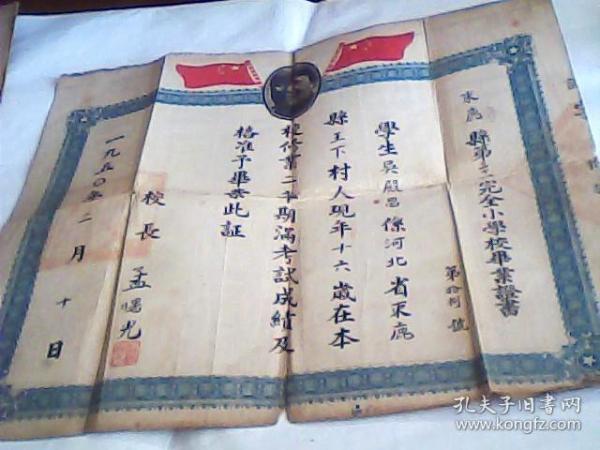 束鹿縣第十二完全小學校畢業證書
第拾柒號
學生吳殿昌係河北省束鹿
縣王下村人現年十六歲在本
校修業二年期滿考試成績及
格准予畢業此証
校長 孟曙光
一九五〇年二月十日
孔夫子旧书网
www.kongfz.com